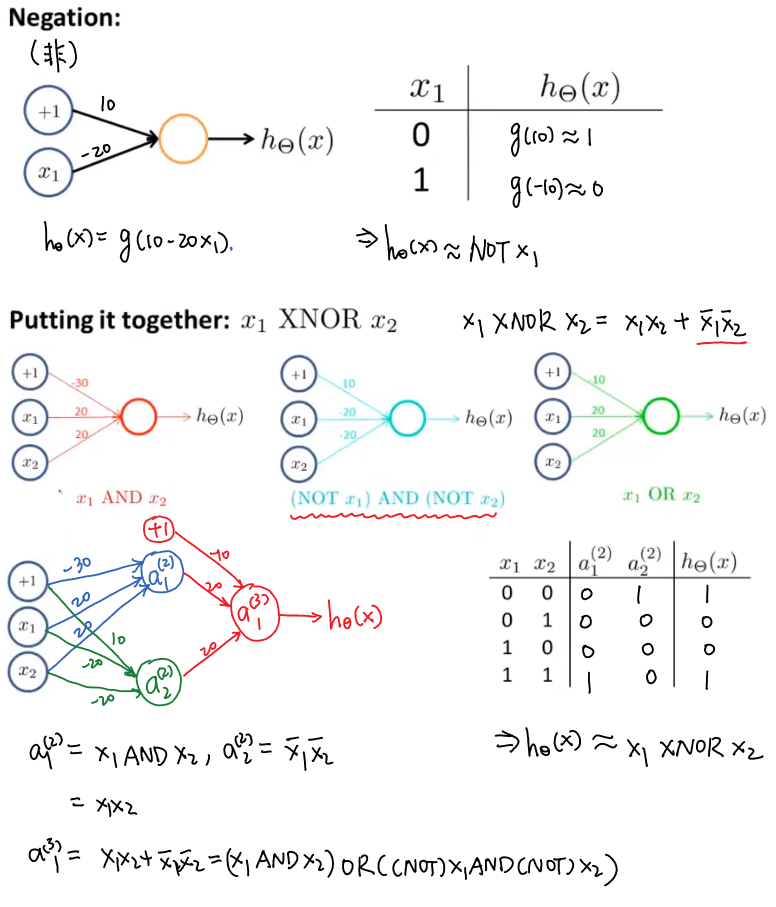 Negation:
(非)
+1 10
x₁ -20
h_Θ(x)
x₁ h_Θ(x)
0 g(10) ≈ 1
1 g(-10) ≈ 0
h_θ(x) = g(10-20x₁).
⇒ h_θ(x) ≈ NOT x₁
Putting it together: x₁ XNOR x₂
x₁ XNOR x₂ = x₁x₂ + x̄₁x̄₂
+1 -30
x₁ 20 h_Θ(x)
x₂ 20
x₁ AND x₂
+1 10
x₁ -20 h_Θ(x)
x₂ -20
(NOT x₁) AND (NOT x₂)
+1 -10
x₁ 20 h_Θ(x)
x₂ 20
x₁ OR x₂
+1 -10
+1 -30 a₁⁽²⁾ 20
x₁ 20 20 10 a₁⁽³⁾ h_θ(x)
x₂ -20 -20 a₂⁽²⁾ 20
x₁ x₂ a₁⁽²⁾ a₂⁽²⁾ h_Θ(x)
0 0 0 1 1
0 1 0 0 0
1 0 0 0 0
1 1 1 0 1
a₁⁽²⁾ = x₁ AND x₂, a₂⁽²⁾ = x̄₁x̄₂
= x₁x₂
⇒ h_θ(x) ≈ x₁ XNOR x₂
a₁⁽³⁾ = x₁x₂ + x̄₁x̄₂ = (x₁ AND x₂) OR ((NOT) x₁ AND (NOT) x₂)